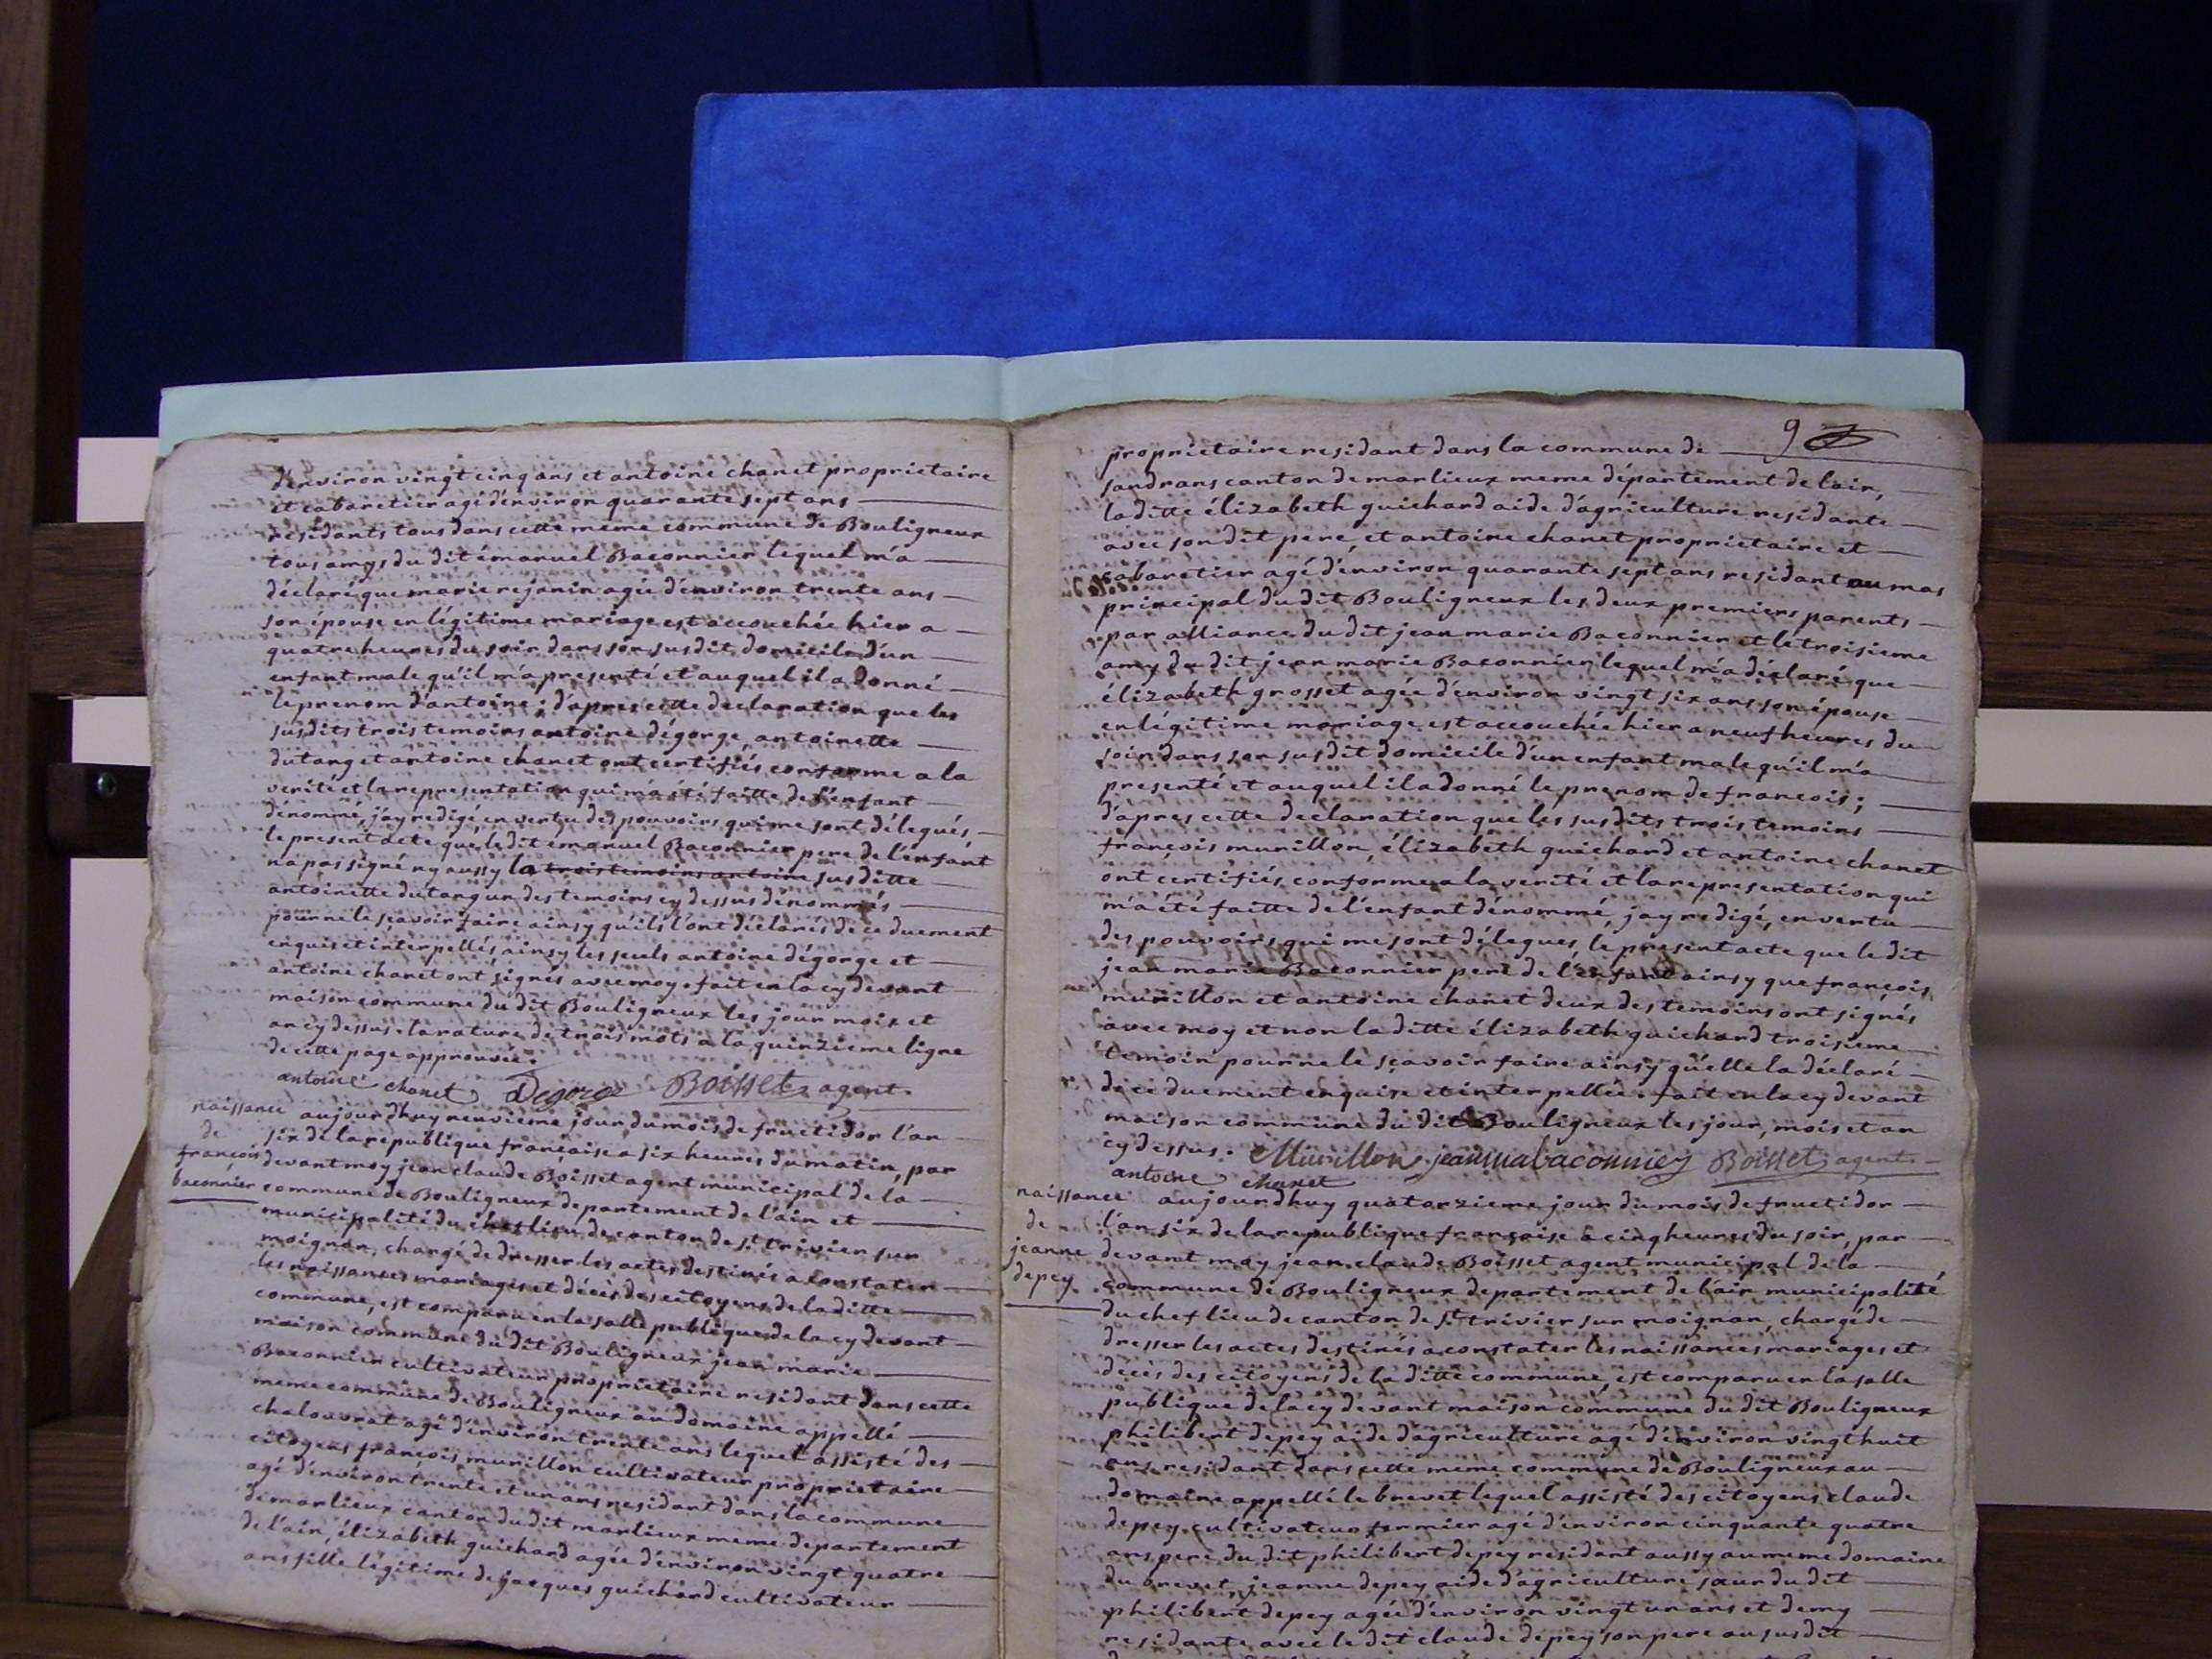 d'environ vingt cinq ans et antoine chanet proprietaire
et cabaretier agé d'environ quarante sept ans
residants tous dans cette meme commune de Bouligneux
tous amys du dit émanuel Baconnier lequel m'a
déclaré que marie rejanin agée d'environ trente ans
son épouse en légitime mariage est accouchée hier a
quatre heures du soir dans son susdit domicile d'un
enfant male qu'il m'a presenté et auquel il a donné
le prenom d'antoine ; d'apres cette déclaration que les
susdits trois temoins antoine dégorge, antoinette
dutang et antoine chanet ont certifiés conforme a la
verité et la representation qui m'a été faitte de l'enfant
dénommé, j'ay redigé en vertu des pouvoirs qui me sont délegués,
le present acte que le dit émanuel Baconnier pere de l'enfant
n'a pas signé ny aussy la trois temoins antoine susditte
antoinette dutang un des temoins cy dessus dénommés
pour ne le sçavoir faire ainsy qu'ils l'ont déclarés de ce duement
enquis et interpellés, ainsy les seuls antoine dégorge et
antoine chanet ont signés avec moy. fait en la cy devant
maison commune du dit Bouligneux les jour mois et
an cy dessus. la rature de trois mots a la quinzieme ligne
de cette page approuvée.
antoine chanet Degorge Boisset agent.
naissance
de
françois
baconnier
aujourdhuy neuvieme jour du mois de fructidor l'an
six de la republique française a six heures du matin, par
devant moy jean claude Boisset agent municipal de la
commune de Bouligneux departement de l'ain et
municipalité du chef lieu de canton de st. trivier sur
moignan, chargé de dresser les actes destinés a constater
les naissances mariages et décès des citoyens de la ditte
commune, est comparu en la salle publique de la cy devant
maison commune du dit Bouligneux jean marie
Baconnier cultivateur proprietaire residant dans cette
meme commune de Bouligneux au domaine appellé
chalouvrat agé d'environ trente ans lequel assisté des
citoyens françois murillon cultivateur proprietaire
agé d'environ trente et un ans residant dans la commune
de marlieux canton du dit marlieux meme departement
de l'ain, élizabeth guichard agée d'environ vingt quatre
ans fille légitime de jacques guichard cultivateur
9
proprietaire residant dans la commune de
sandrans canton de marlieux meme département de l'ain,
la ditte élizabeth guichard aide d'agriculture residante
avec son dit pere, et antoine chanet proprietaire et
cabaretier agé d'environ quarante sept ans residant au mas
principal du dit Bouligneux les deux premiers parents
par alliance du dit jean marie Baconnier et le troisieme
amy du dit jean marie Baconnier lequel m'a déclaré que
élizabeth grosset agée d'environ vingt six ans son épouse
en légitime mariage est accouchée hier a neuf heures du
soir dans son susdit domicile d'un enfant male qu'il m'a
presenté et auquel il a donné le prenom de francois ;
d'apres cette declaration que les susdits trois temoins
françois murillon, élizabeth guichard et antoine chanet
ont certifiés conforme a la verité et la representation qui
m'a été faitte de l'enfant dénommé, j'ay redigé, en vertu
des pouvoirs qui me sont délegues, le present acte que le dit
jean marie Baconnier pere de l'enfant ainsy que françois
murillon et antoine chanet deux des temoins ont signés
avec moy et non la ditte élizabeth guichard troisieme
temoin pour ne le sçavoir faire ainsy qu'elle la déclaré
de ce duement enquise et interpellée. fait en la cy devant
maison commune du dit Bouligneux les jour, mois et an
cy dessus. Murillon jean ma baconnier Boisset agent.
antoine chanet
naissance
de
jeanne
depey
aujourdhuy quatorzieme jour du mois de fructidor
l'an six de la republique françoise a cinq heures du soir, par
devant moy jean claude Boisset agent municipal de la
commune de Bouligneux departement de l'ain municipalité
du chef lieu de canton de st. trivier sur moignan, chargé de
dresser les actes destinés a constater les naissances mariages et
décès des citoyens de la ditte commune, est comparu en la salle
publique de la cy devant maison commune du dit Bouligneux
philibert depey aide d'agriculture agé d'environ vingt huit
ans residant dans cette meme commune de Bouligneux au
domaine appellé le brevet lequel assisté des citoyens claude
depey cultivateur fermier agé d'environ cinquante quatre
ans pere du dit philibert depey residant aussy au meme domaine
du brevet, jeanne depey aide d'agriculture sœur du dit
philibert depey agée d'environ vingt un ans et demy
residante avec le dit claude depey son pere au susdit